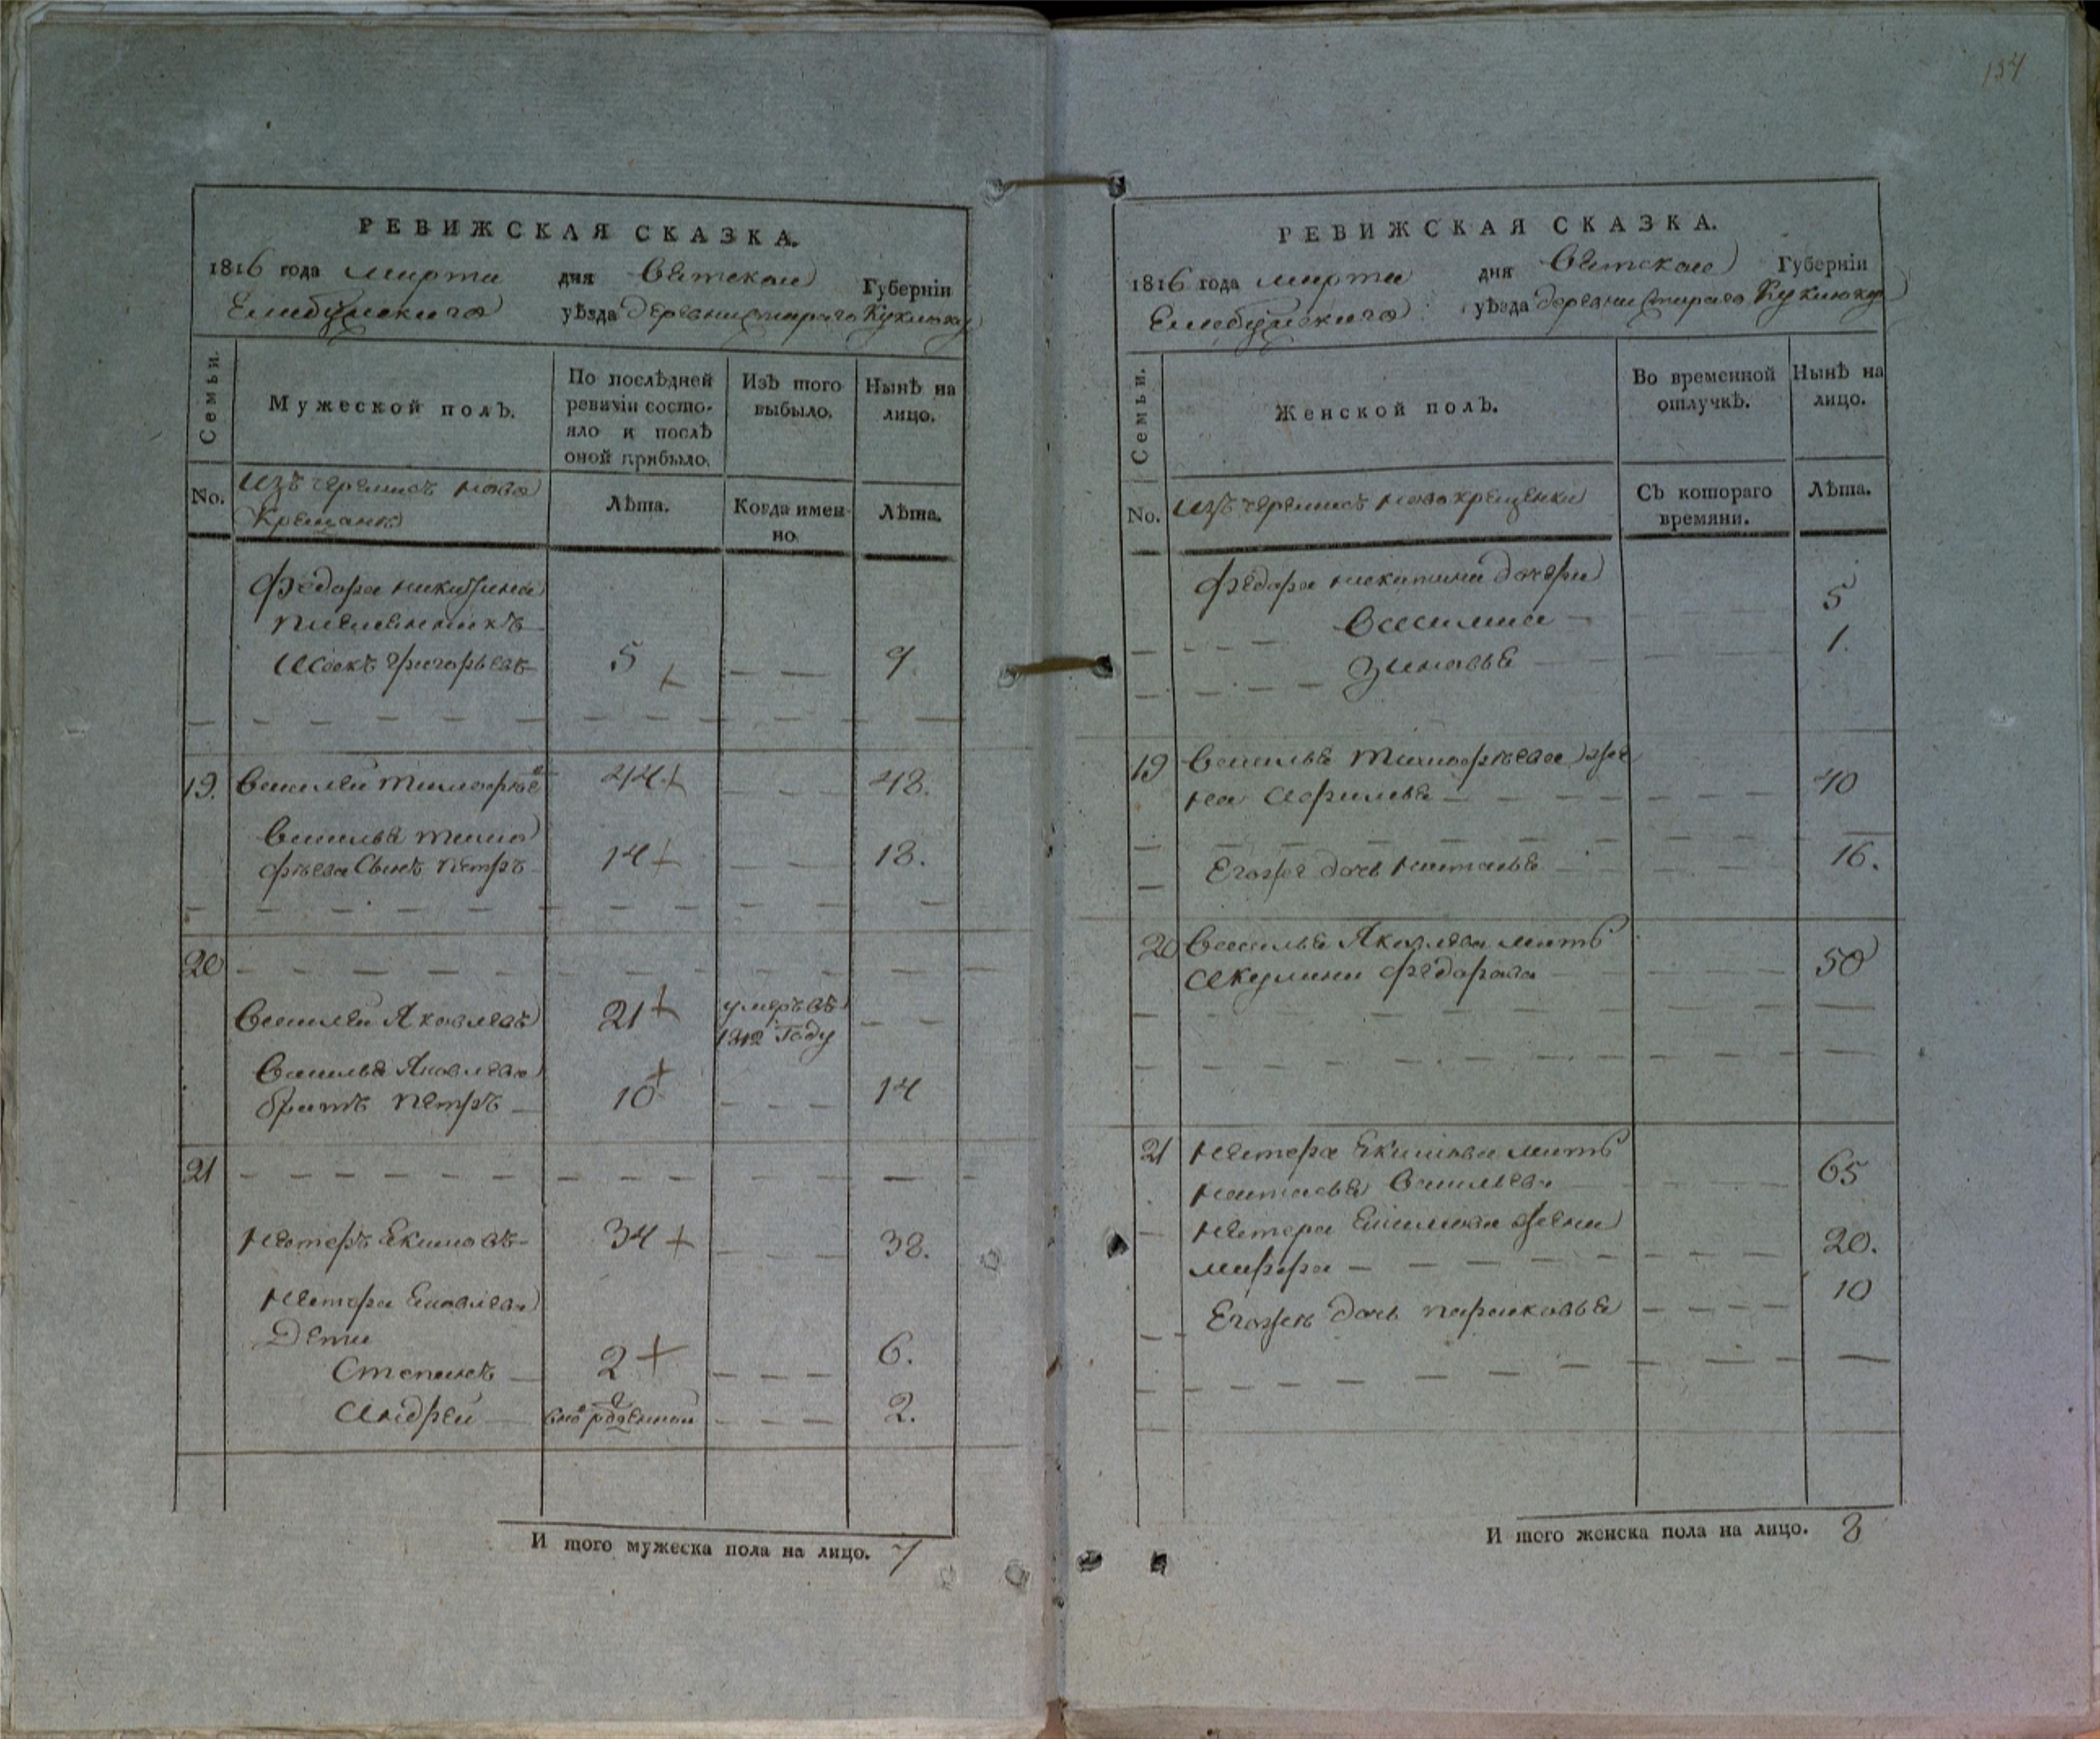 154
РЕВИЖСКАЯ СКАЗКА.
1816 года марта дня Вятской Губерніи
Елабужскаго уѣзда деревни Стараго Кукмоку
Семьи.
Мужеской полъ.
По послѣдней ревизіи состояло и послѣ оной прибыло.
Изъ того выбыло.
Нынѣ на лицо.
No.
изъ черемисъ ново
крещанъ
Лѣта.
Когда имен-
но.
Лѣта.
Федора никитина
племянникъ
Исакъ григорьевъ 5 9
19. Василей тимофѣевъ 44 48.
Василья тимо
фѣева сынъ петръ 14 18.
20
Василей Яковлевъ 21 умеръ въ
1812 году
Василья Яковлева
братъ петръ 10 14
21
Нестеръ Екимовъ 34 38.
Нестера
дети
Степанъ 2 6.
Андрей 2.
И того мужеска пола на лицо. 7
РЕВИЖСКАЯ СКАЗКА.
1816 года марта дня Вятской Губерніи
Елабужскаго уѣзда деревни Стараго Кукмоку
Семьи.
Женской полъ.
Во временной отлучкѣ.
Нынѣ на лицо.
No.
изъ черемисъ новокрещенки
Съ котораго
времяни.
Лѣта.
Федора никитина дочери
Василиса 5
Зиновья 1.
19 Василья тимофѣева же
на Афимья 40
Егоже дочь наталья 16.
20 Василья Яковлева мать
Акулина федорова 50
21 Нестера Екимова мать
наталья Васильева 65
Нестера жена
марфа 20.
Егоже дочь парасковья 10
И того женска пола на лицо. 8